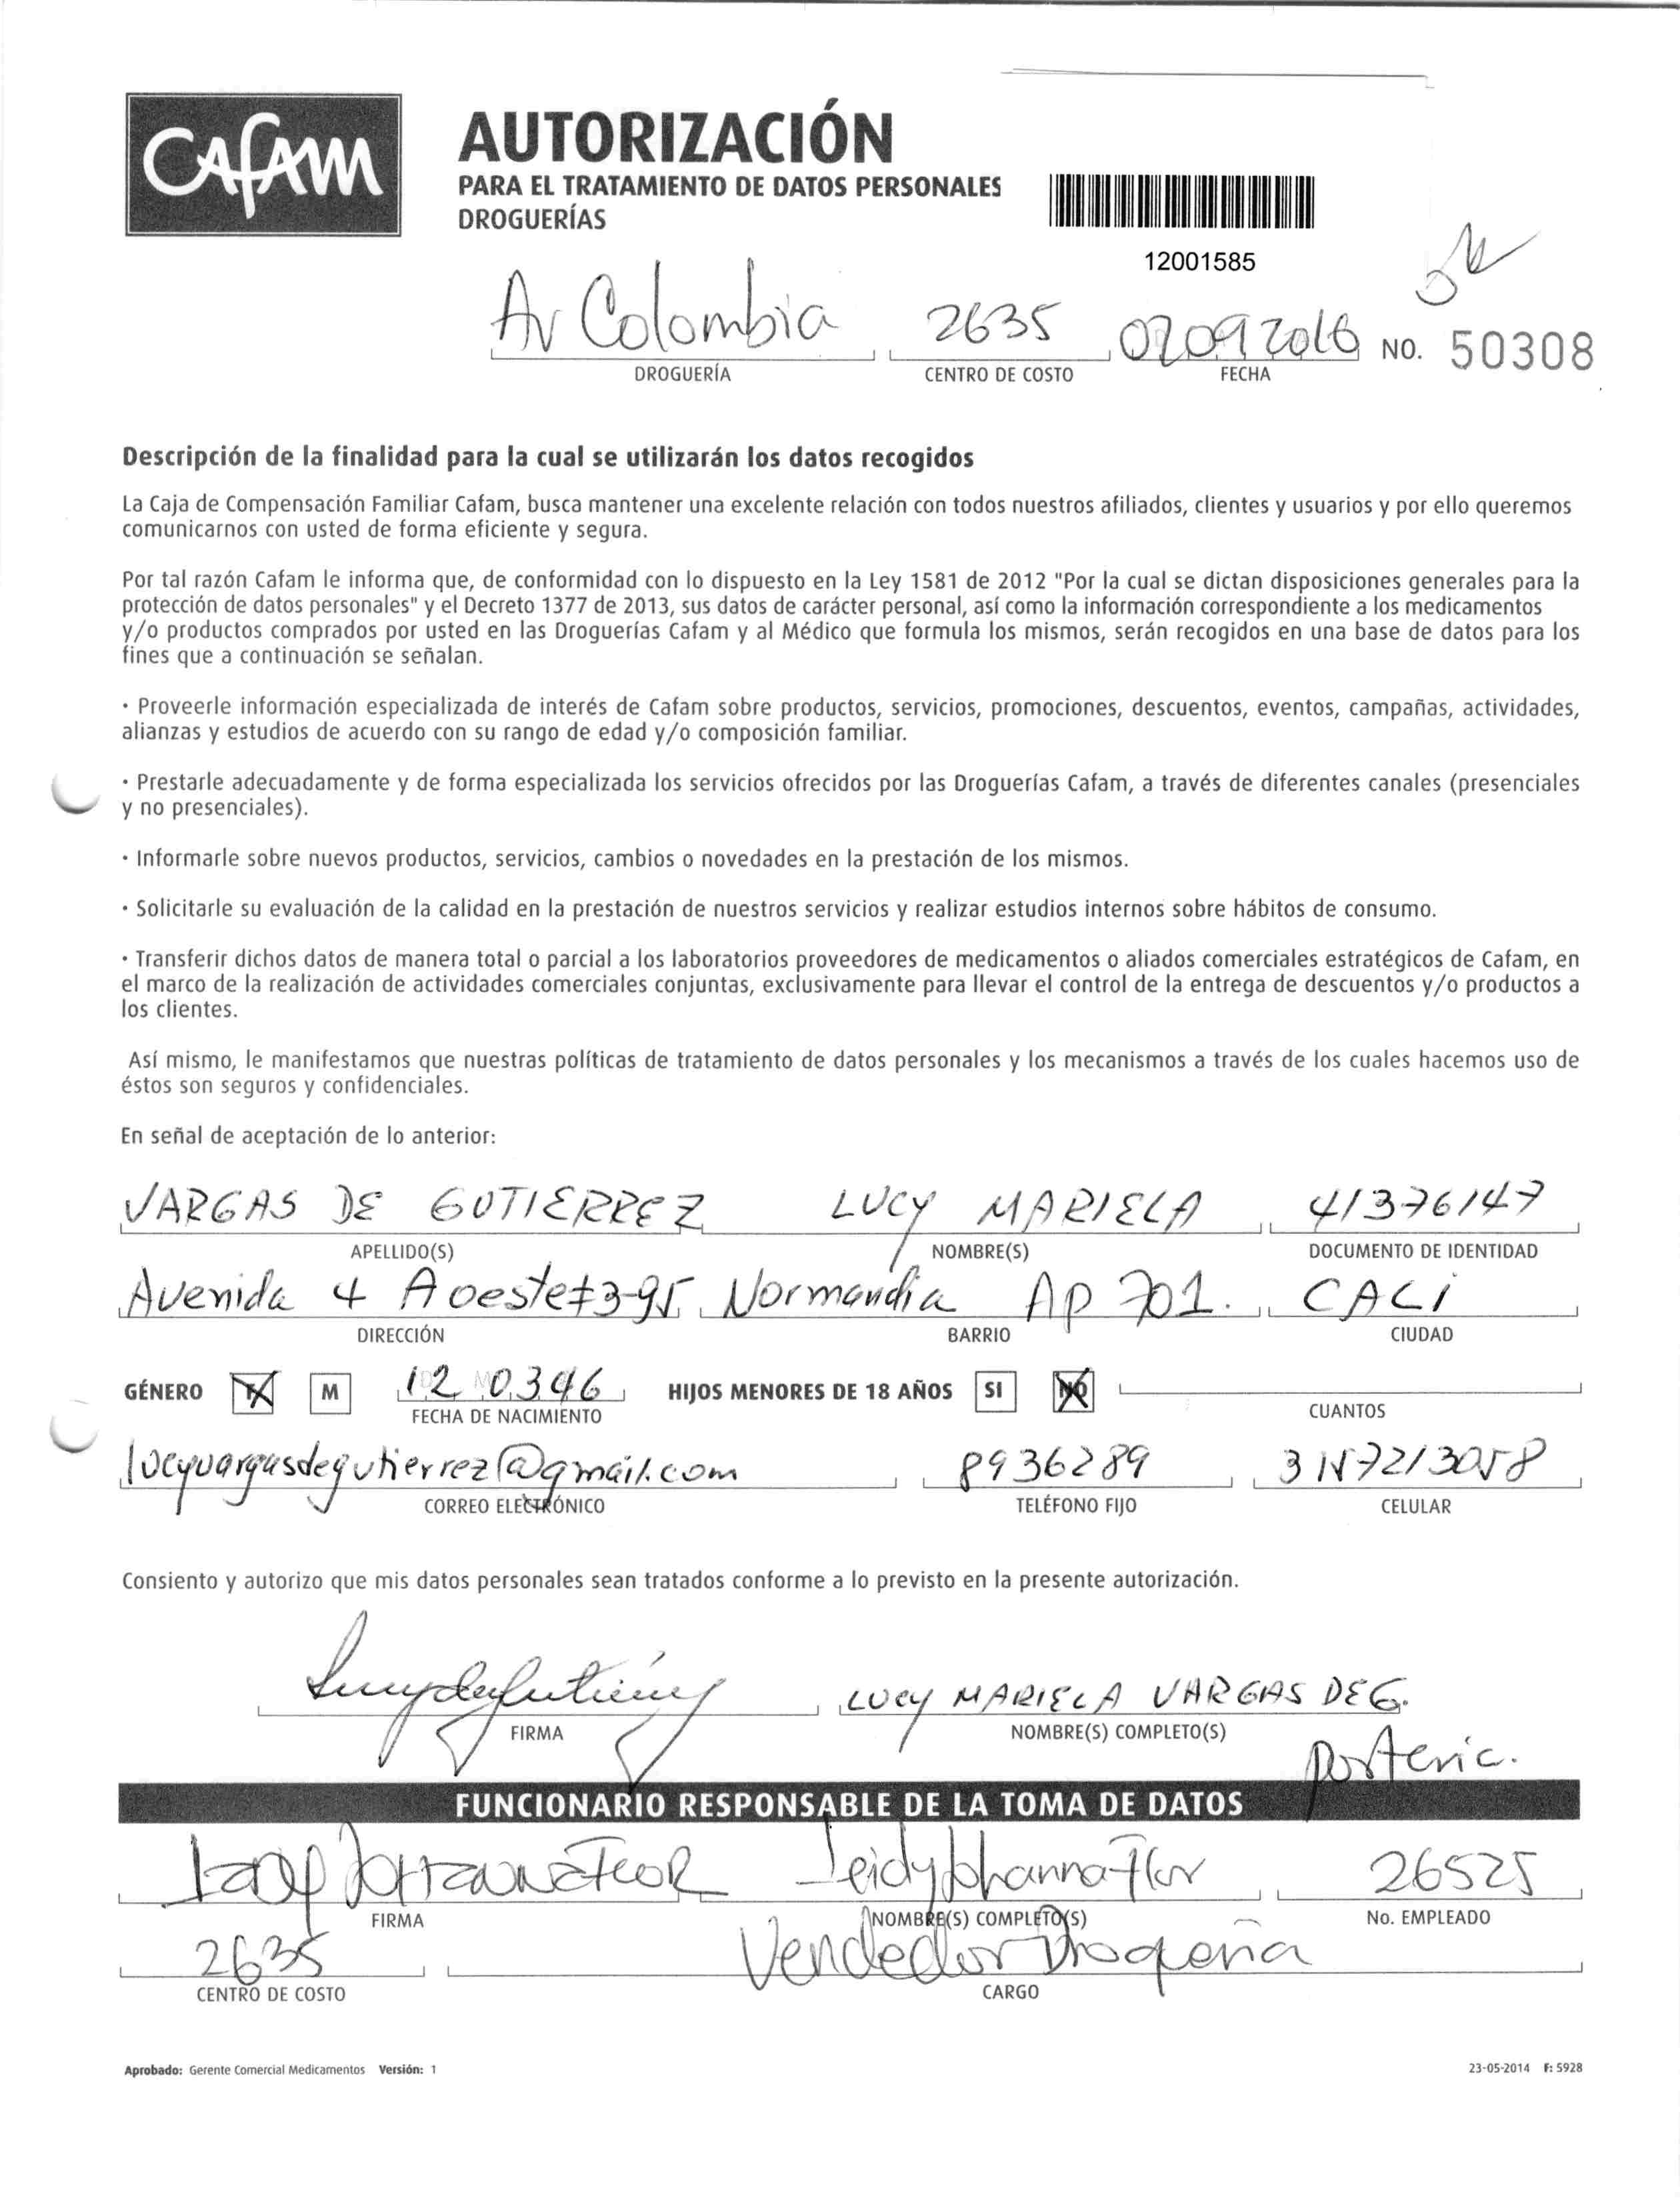 CAFAM
AUTORIZACIÓN
PARA EL TRATAMIENTO DE DATOS PERSONALES
DROGUERÍAS
12001585
Av Colombia 2635 02092016 NO. 50308
DROGUERÍA CENTRO DE COSTO FECHA
Descripción de la finalidad para la cual se utilizarán los datos recogidos
La Caja de Compensación Familiar Cafam, busca mantener una excelente relación con todos nuestros afiliados, clientes y usuarios y por ello queremos
comunicarnos con usted de forma eficiente y segura.
Por tal razón Cafam le informa que, de conformidad con lo dispuesto en la Ley 1581 de 2012 "Por la cual se dictan disposiciones generales para la
protección de datos personales" y el Decreto 1377 de 2013, sus datos de carácter personal, así como la información correspondiente a los medicamentos
y/o productos comprados por usted en las Droguerías Cafam y al Médico que formula los mismos, serán recogidos en una base de datos para los
fines que a continuación se señalan.
· Proveerle información especializada de interés de Cafam sobre productos, servicios, promociones, descuentos, eventos, campañas, actividades,
alianzas y estudios de acuerdo con su rango de edad y/o composición familiar.
· Prestarle adecuadamente y de forma especializada los servicios ofrecidos por las Droguerías Cafam, a través de diferentes canales (presenciales
y no presenciales).
· Informarle sobre nuevos productos, servicios, cambios o novedades en la prestación de los mismos.
· Solicitarle su evaluación de la calidad en la prestación de nuestros servicios y realizar estudios internos sobre hábitos de consumo.
· Transferir dichos datos de manera total o parcial a los laboratorios proveedores de medicamentos o aliados comerciales estratégicos de Cafam, en
el marco de la realización de actividades comerciales conjuntas, exclusivamente para llevar el control de la entrega de descuentos y/o productos a
los clientes.
Así mismo, le manifestamos que nuestras políticas de tratamiento de datos personales y los mecanismos a través de los cuales hacemos uso de
éstos son seguros y confidenciales.
En señal de aceptación de lo anterior:
VARGAS DE GUTIERREZ LUCY MARIELA 41376147
APELLIDO(S) NOMBRE(S) DOCUMENTO DE IDENTIDAD
Avenida 4 A oeste #3-95 Normandia Ap 701. CALI
DIRECCIÓN BARRIO CIUDAD
GÉNERO F M 12 03 46 HIJOS MENORES DE 18 AÑOS SI NO
FECHA DE NACIMIENTO CUANTOS
lucyvargasdegutierrez@gmail.com 8936289
CORREO ELECTRÓNICO TELÉFONO FIJO CELULAR
Consiento y autorizo que mis datos personales sean tratados conforme a lo previsto en la presente autorización.
LUCY MARIELA VARGAS DE G.
FIRMA NOMBRE(S) COMPLETO(S)
FUNCIONARIO RESPONSABLE DE LA TOMA DE DATOS
Leidy Johanna Flor 26525
FIRMA NOMBRE(S) COMPLETO(S) No. EMPLEADO
2635 Vendedor Drogueria
CENTRO DE COSTO CARGO
Aprobado: Gerente Comercial Medicamentos Versión: 1 23-05-2014 F: 5928